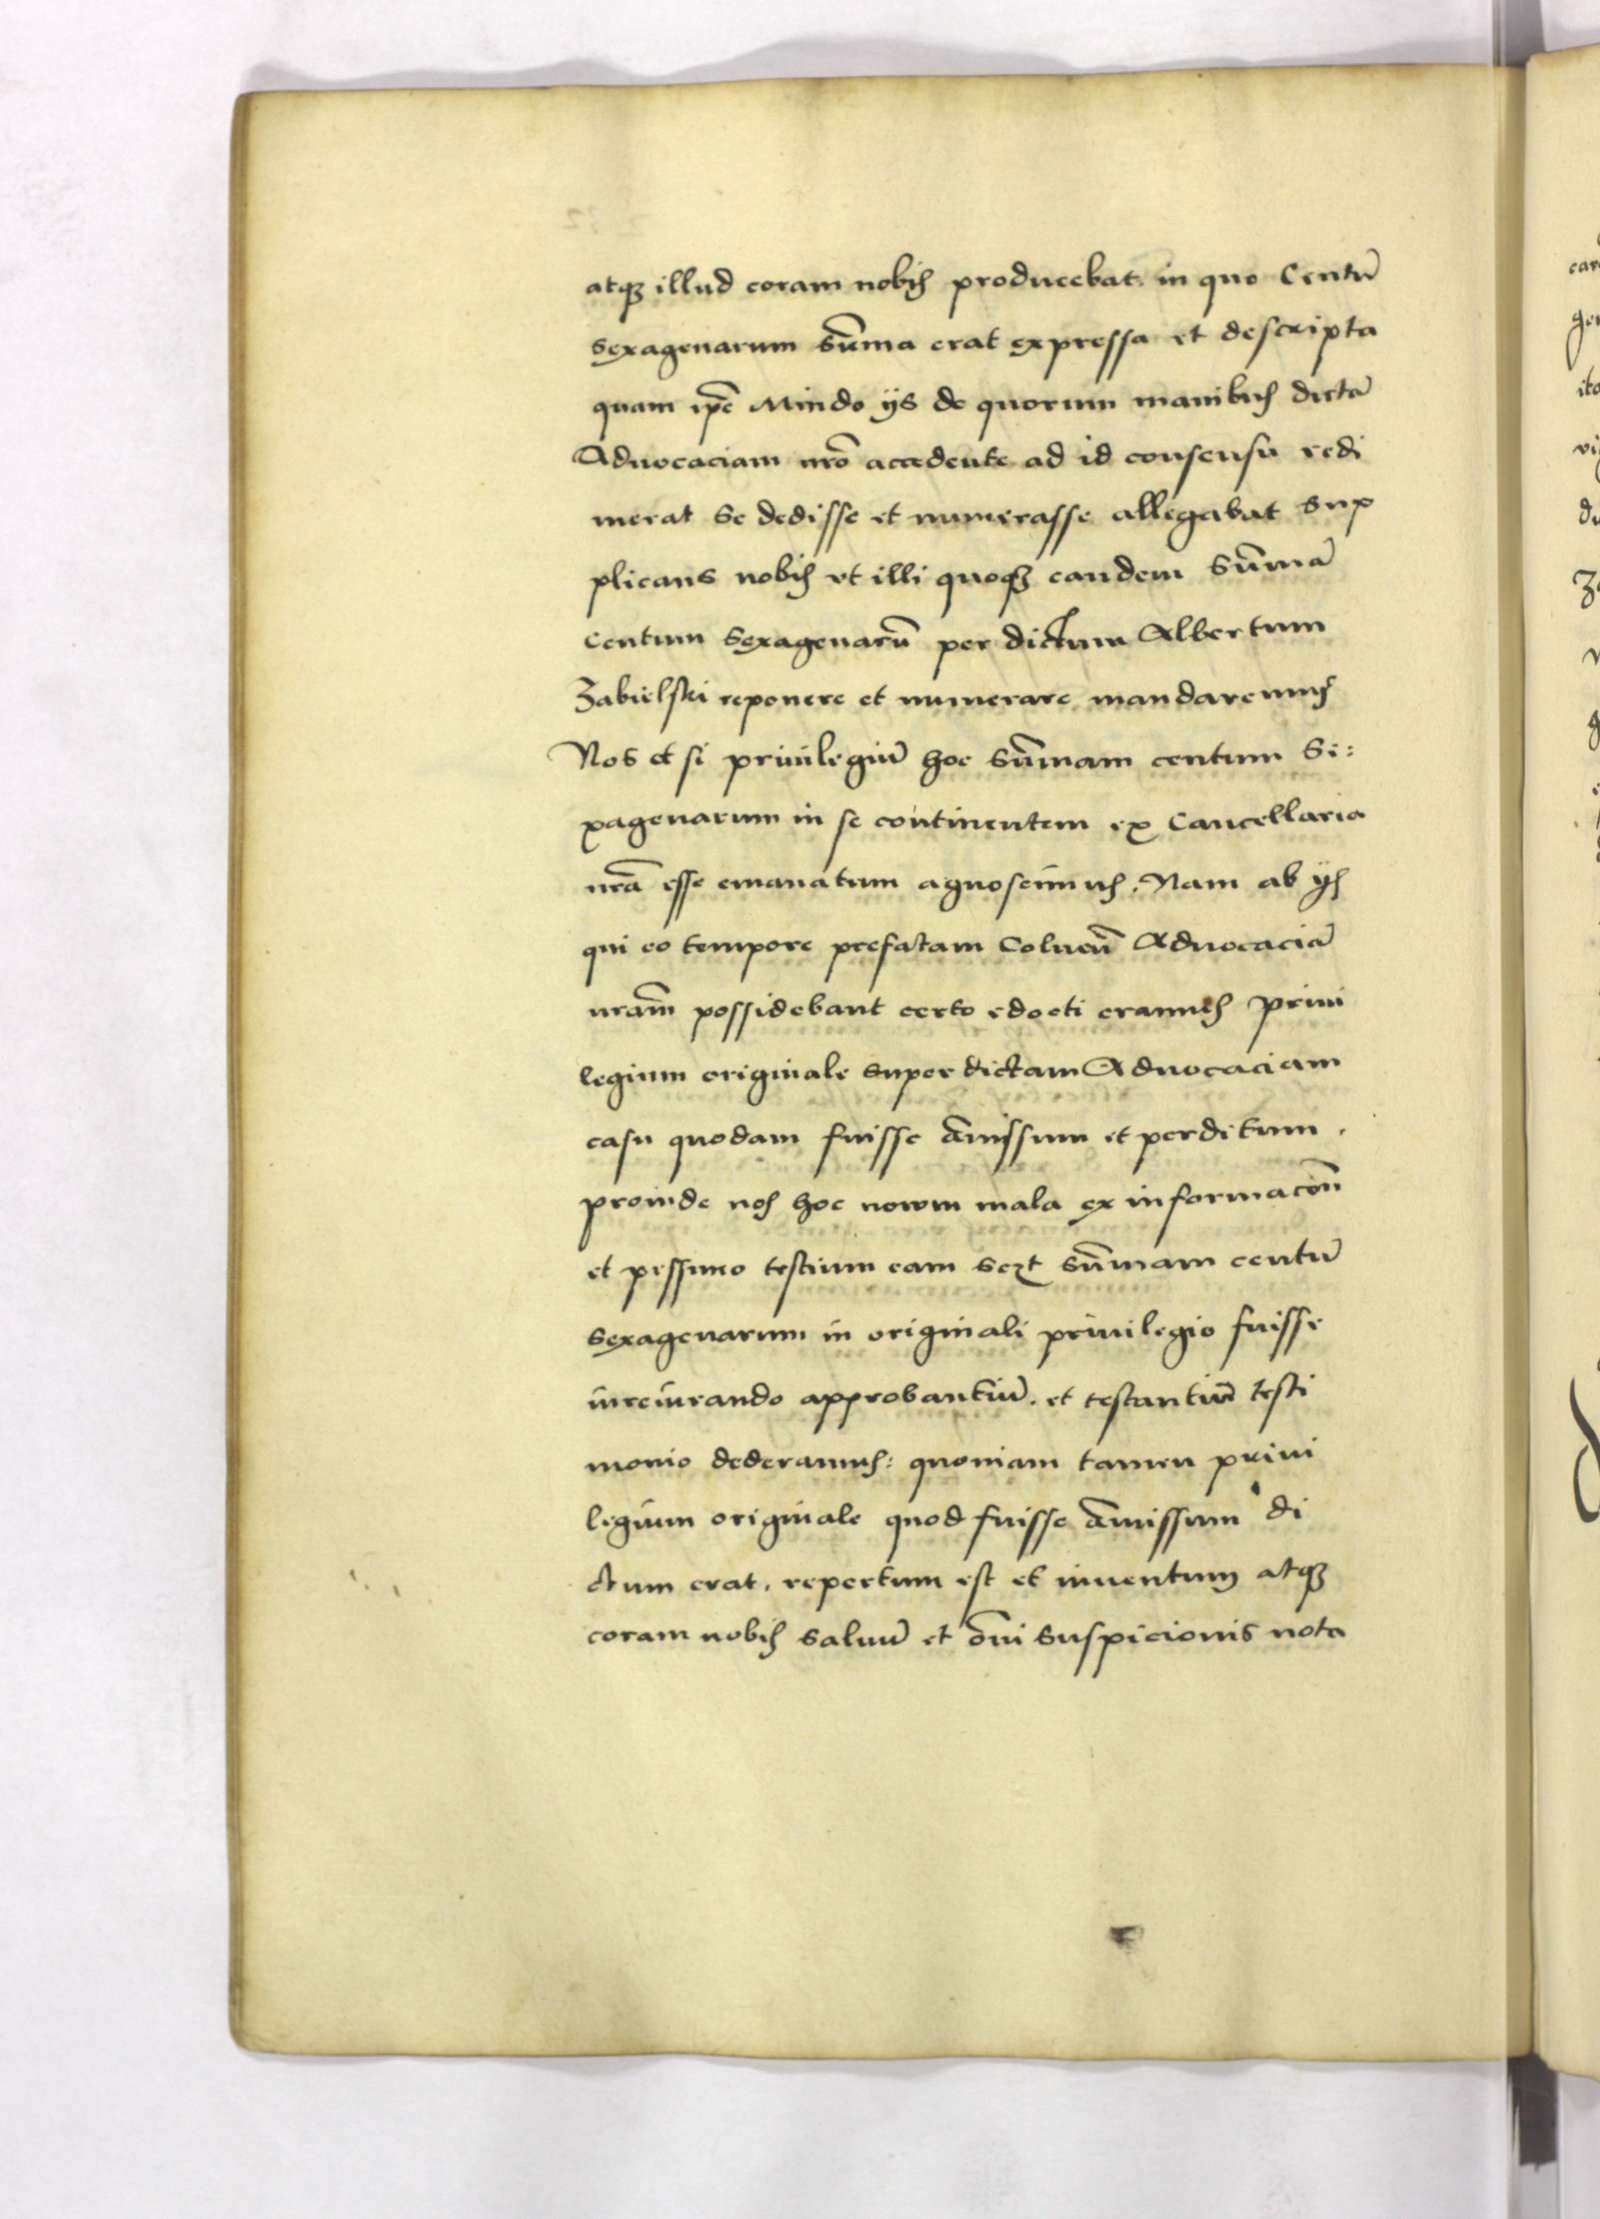 atqꝫ illud coram nobis producebat in quo Centū
sexagenarum sūma erat expressa et descripta
quam ip̄e Mindo ijs de quorum manibus dictā
Aduocaciam nr̄o accedente ad id consensu redi
merat se dedisse et numerasse allegabat sup
plicans nobis vt illi quoqꝫ eandem sūmā
centum sexagenarū per dictum Albertum
Zabielski reponere et numerare mandaremus
Nos et si priuilegiū hoc sūmam centum se:
xagenarum in se continentem ex Cancellaria
nr̄a esse emanatum agnoscimus. Nam ab ijs
qui eo tempore prefatam Coluen̄ Aduocaciā
nr̄am possidebant certo edocti eramus priui
legium originale super dictam Aduocaciam
casu quodam fuisse āmissum et perditum.
proinde nos hoc nouum mala ex informacōn
et pessimo testium eam sczt sūmam centū
sexagenarum in originali priuilegio fuisse
iureiurando approbantiū. et testantiū testi
monio dederamus: quoniam tamen priui
legium originale quod fuisse āmissum di
ctum erat, repertum est et inuentum atqꝫ
coram nobis saluū et ōni suspicionis nota